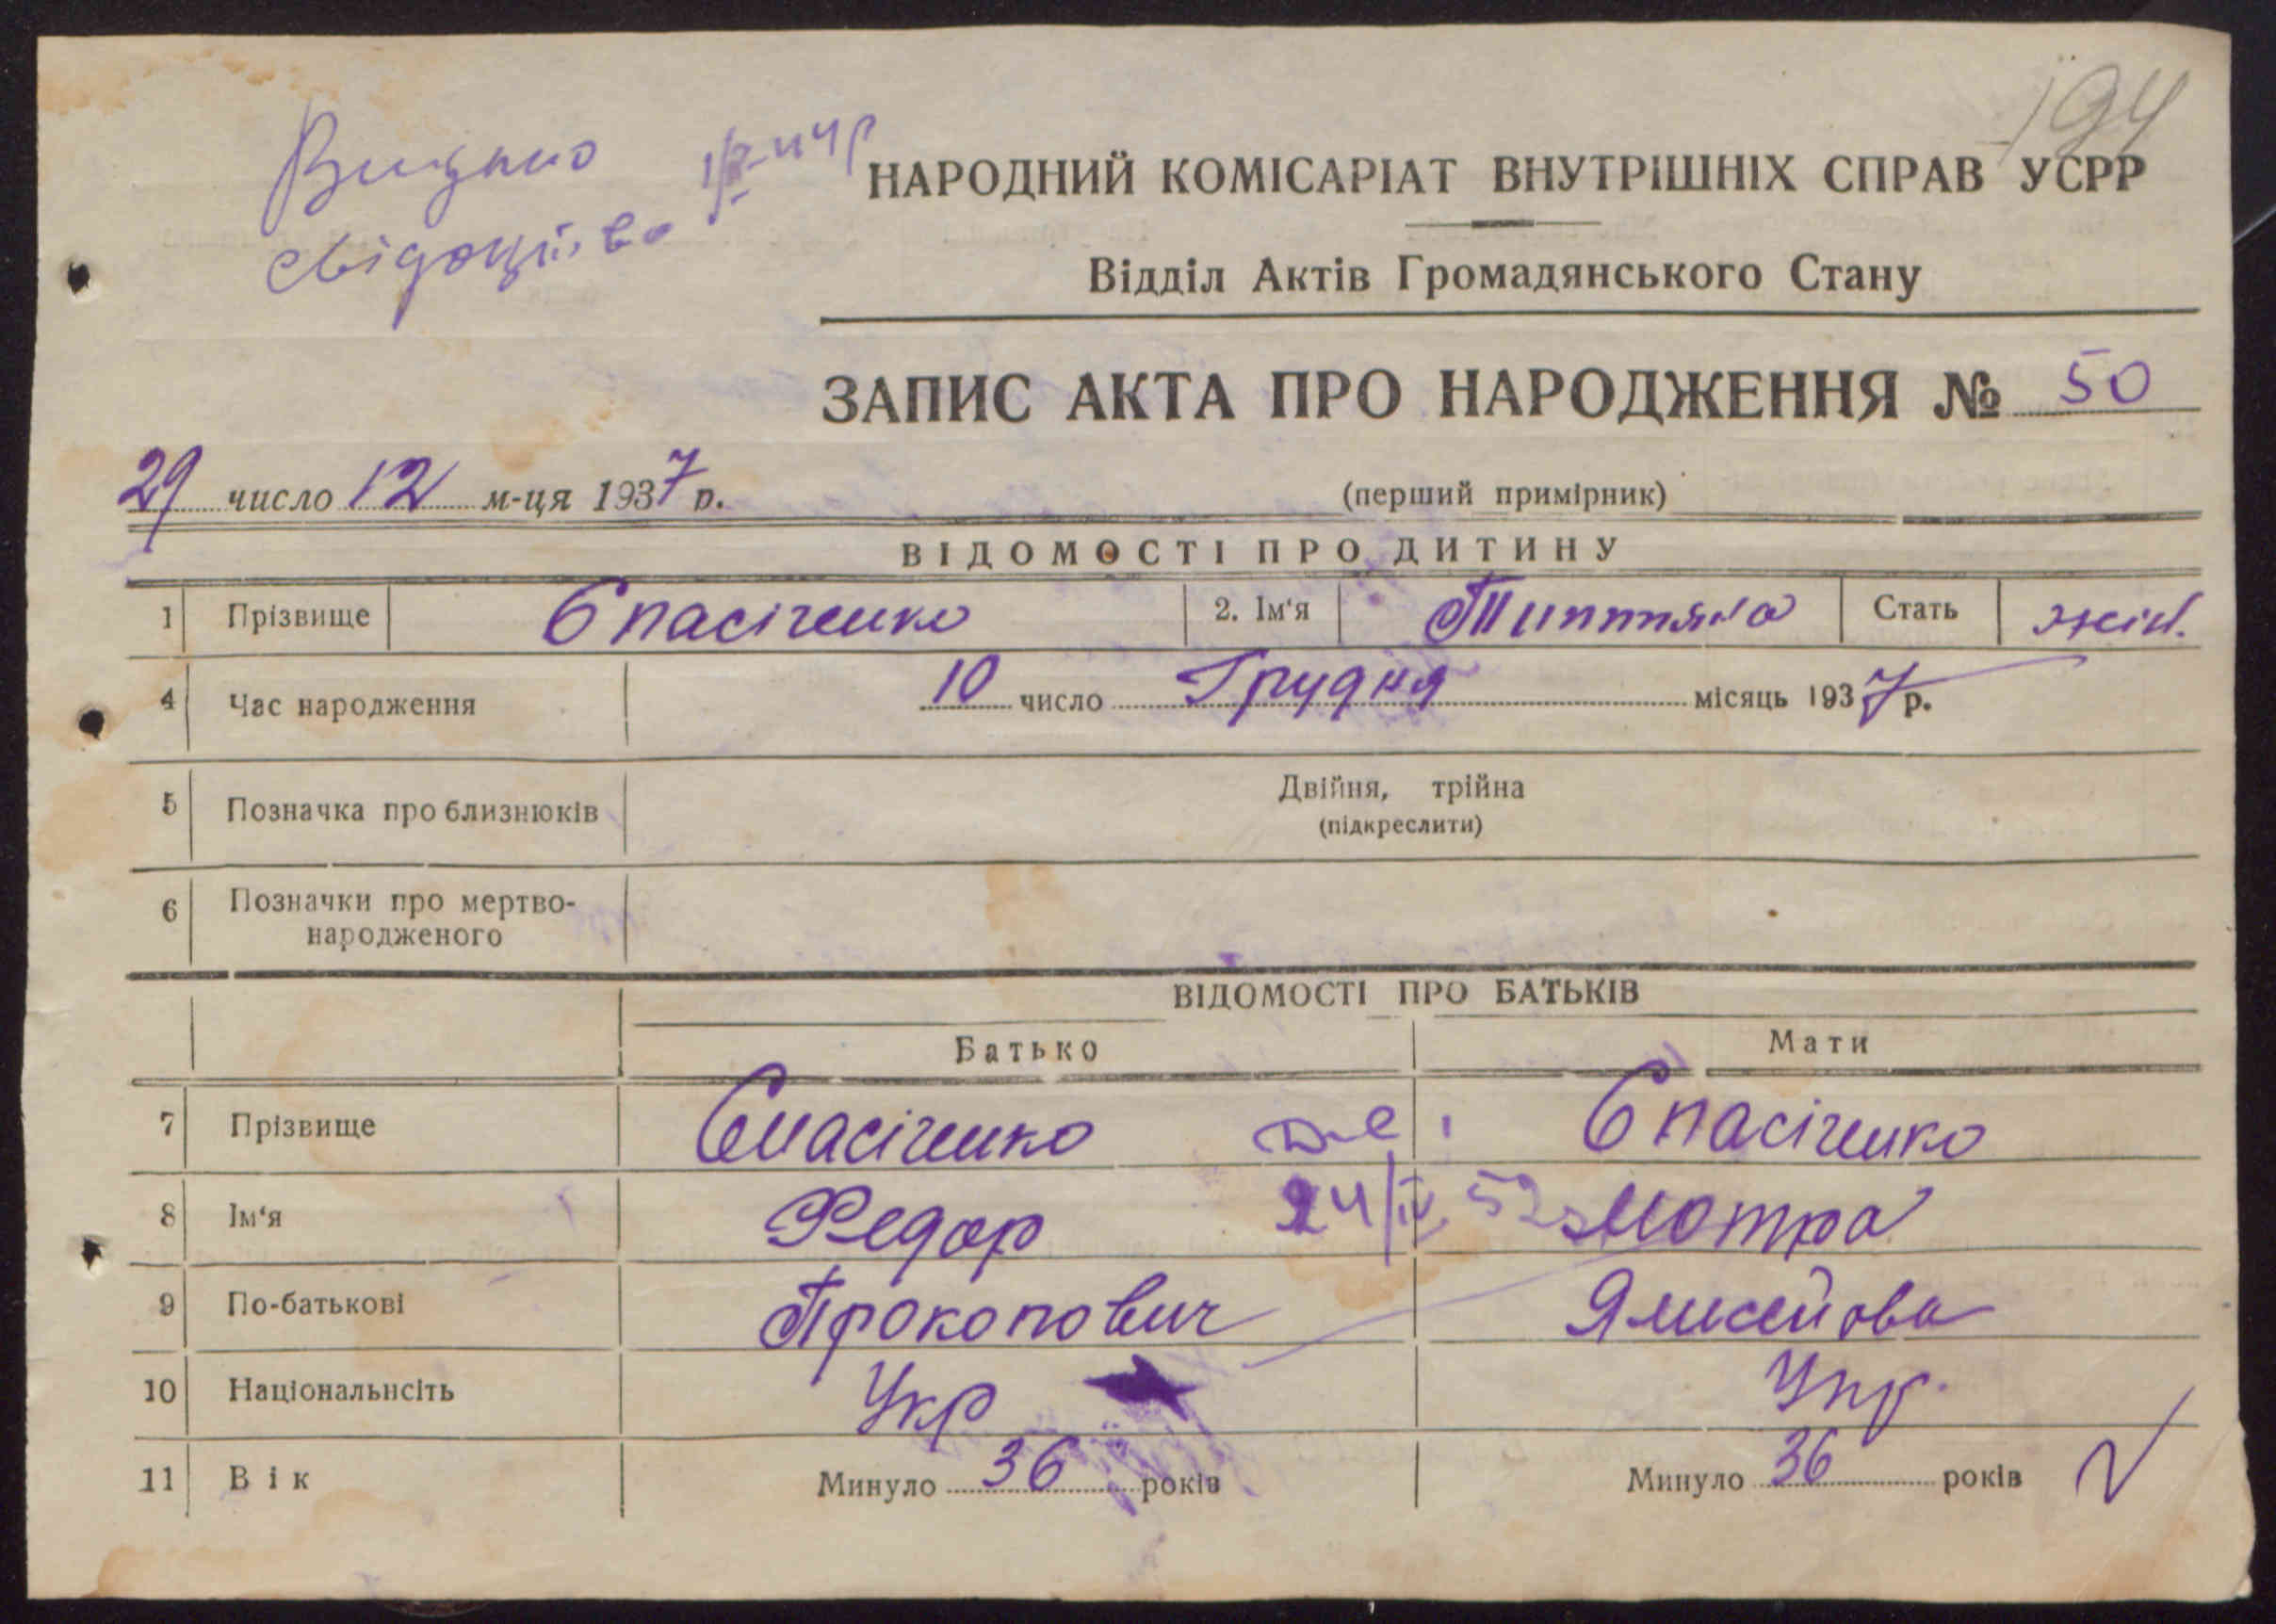 194
Видано
свідоцтво
НАРОДНИЙ КОМІСАРІАТ ВНУТРІШНІХ СПРАВ УСРР
Відділ Актів Громадянського Стану
ЗАПИС АКТА ПРО НАРОДЖЕННЯ № 50
29 число 12 м-ця 1937 р. (перший примірник)
ВІДОМОСТІ ПРО ДИТИНУ
1 Прізвище Спасіченко 2. Ім'я Титтяна Стать жін.
4 Час народження 10 число Грудня місяць 1937 р.
5 Позначка про близнюків Двійня, трійна
(підкреслити)
6 Позначки про мертво-
народженого
ВІДОМОСТІ ПРО БАТЬКІВ
Батько Мати
7 Прізвище Спасіченко Спасіченко
8 Ім'я Федор 24/IV 52 Мотра
9 По-батькові Прокопович
10 Національнсіть Укр Укр.
11 Вік Минуло 36 років Минуло 36 років